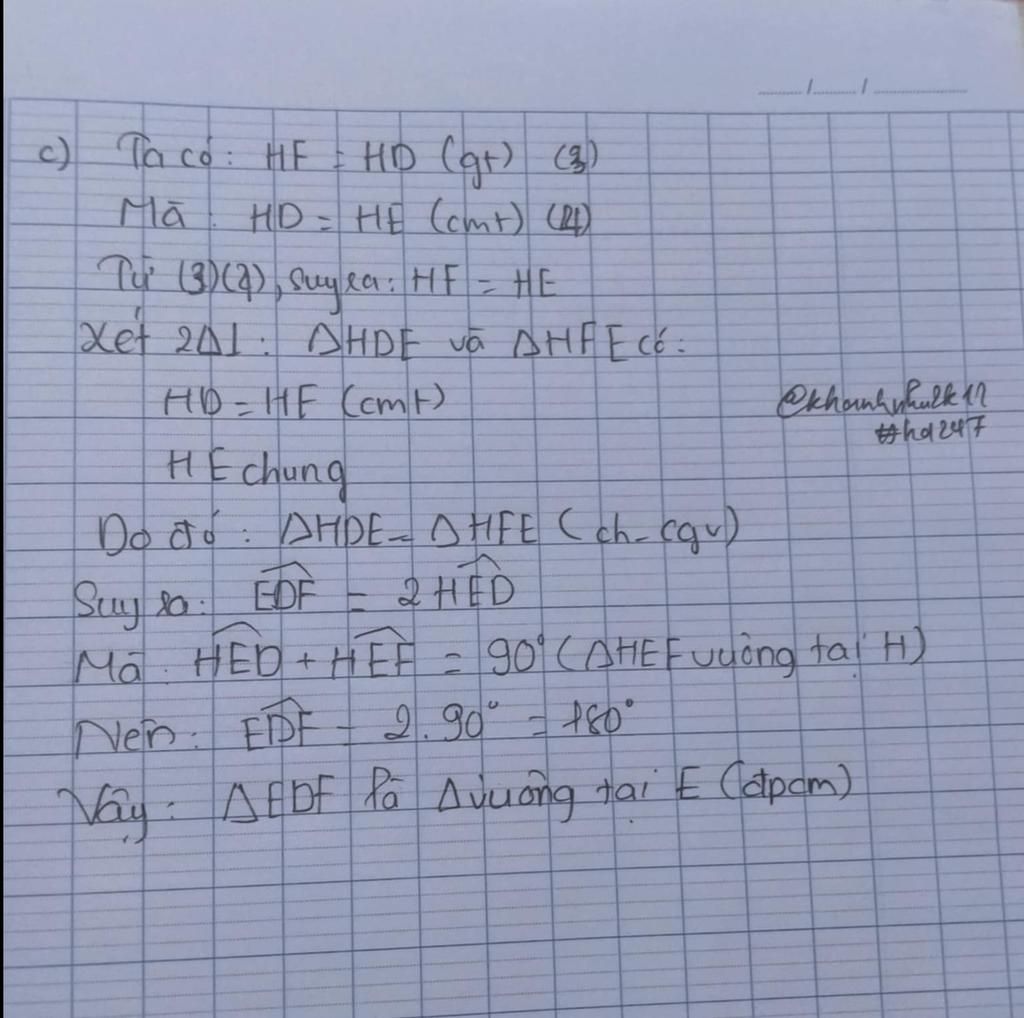 c) Ta có: HF = HD (gt) (3)
Mà: HD = HE (cmt) (4)
Từ (3)(4), suy ra: HF = HE
Xét 2Δ⊥: ΔHDE và ΔHFE có:
HD = HF (cmt)
@khanhnhu2k12
#hd247
HE chung
Do đó: ΔHDE = ΔHFE (ch - cgv)
Suy ra: EDF = 2 HED
Mà: HED + HEF = 90° (ΔHEF vuông tại H)
Nên: EDF = 2. 90° = 180°
Vậy: ΔEDF là Δvuông tại E (đpcm)